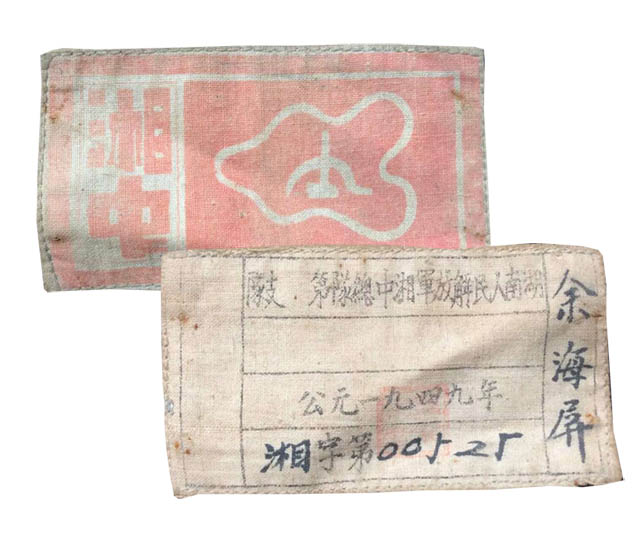 湘中
湖南人民解放軍湘中總隊第 支隊
公元一九四九年
湘字第00525
余海屏